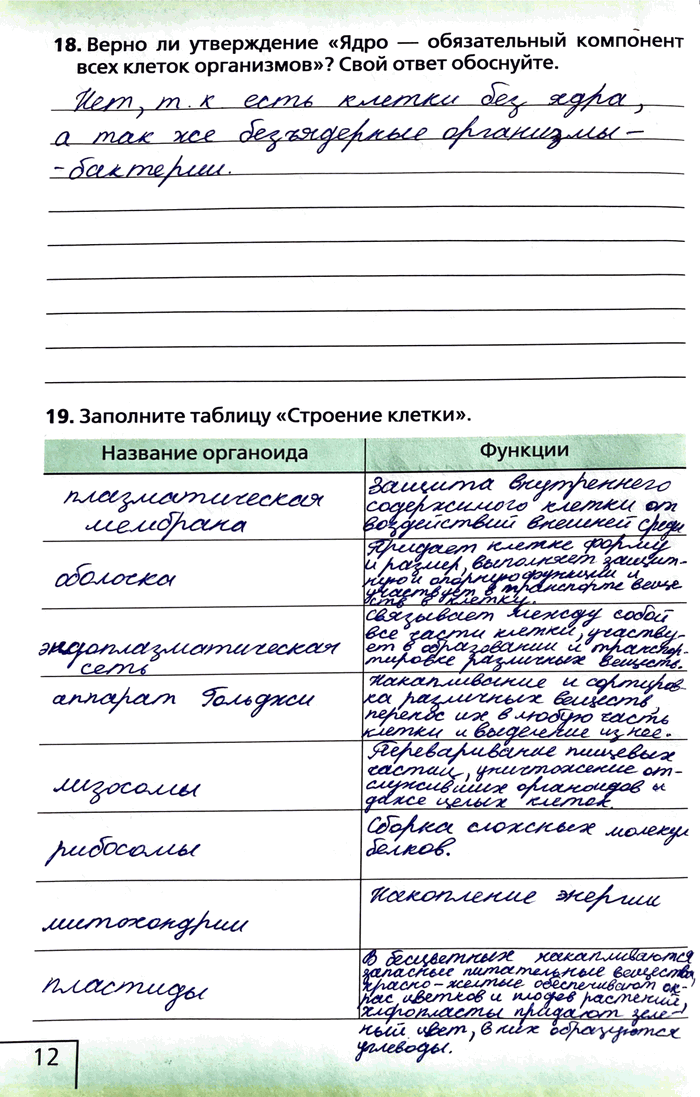 18. Верно ли утверждение «Ядро — обязательный компонент
всех клеток организмов»? Свой ответ обоснуйте.
Нет, т.к есть клетки без ядра,
а так же безъядерные организмы –
- бактерии.
19. Заполните таблицу «Строение клетки».
Название органоида
Функции
плазматическая
мембрана
Защита внутреннего
содержимого клетки от
воздействий внешней среды
оболочка
Придает клетке форму
и размер, выполняет защит-
ную и опорную функции и
участвует в транспорте веще
ств в клетку.
эндоплазматическая
сеть
Связывает между собой
все части клетки, участву-
ет в образовании и транспор-
тировке различных веществ.
аппарат Гольджи
Накапливание и сортиров-
ка различных веществ,
перенос их в любую часть
клетки и выделение из нее.
лизосомы
Переваривание пищевых
частиц, уничтожение от-
служивших органоидов и
даже целых клеток.
рибосомы
Сборка сложных молекул
белков.
митохондрии
Накопление энергии
пластиды
В бесцветных накапливаются
запасные питательные вещества,
красно-желтые обеспечивают ок-
рас цветков и плодов растений,
хлоропласты придают зеле-
ный цвет, в них образуются
углеводы.
12